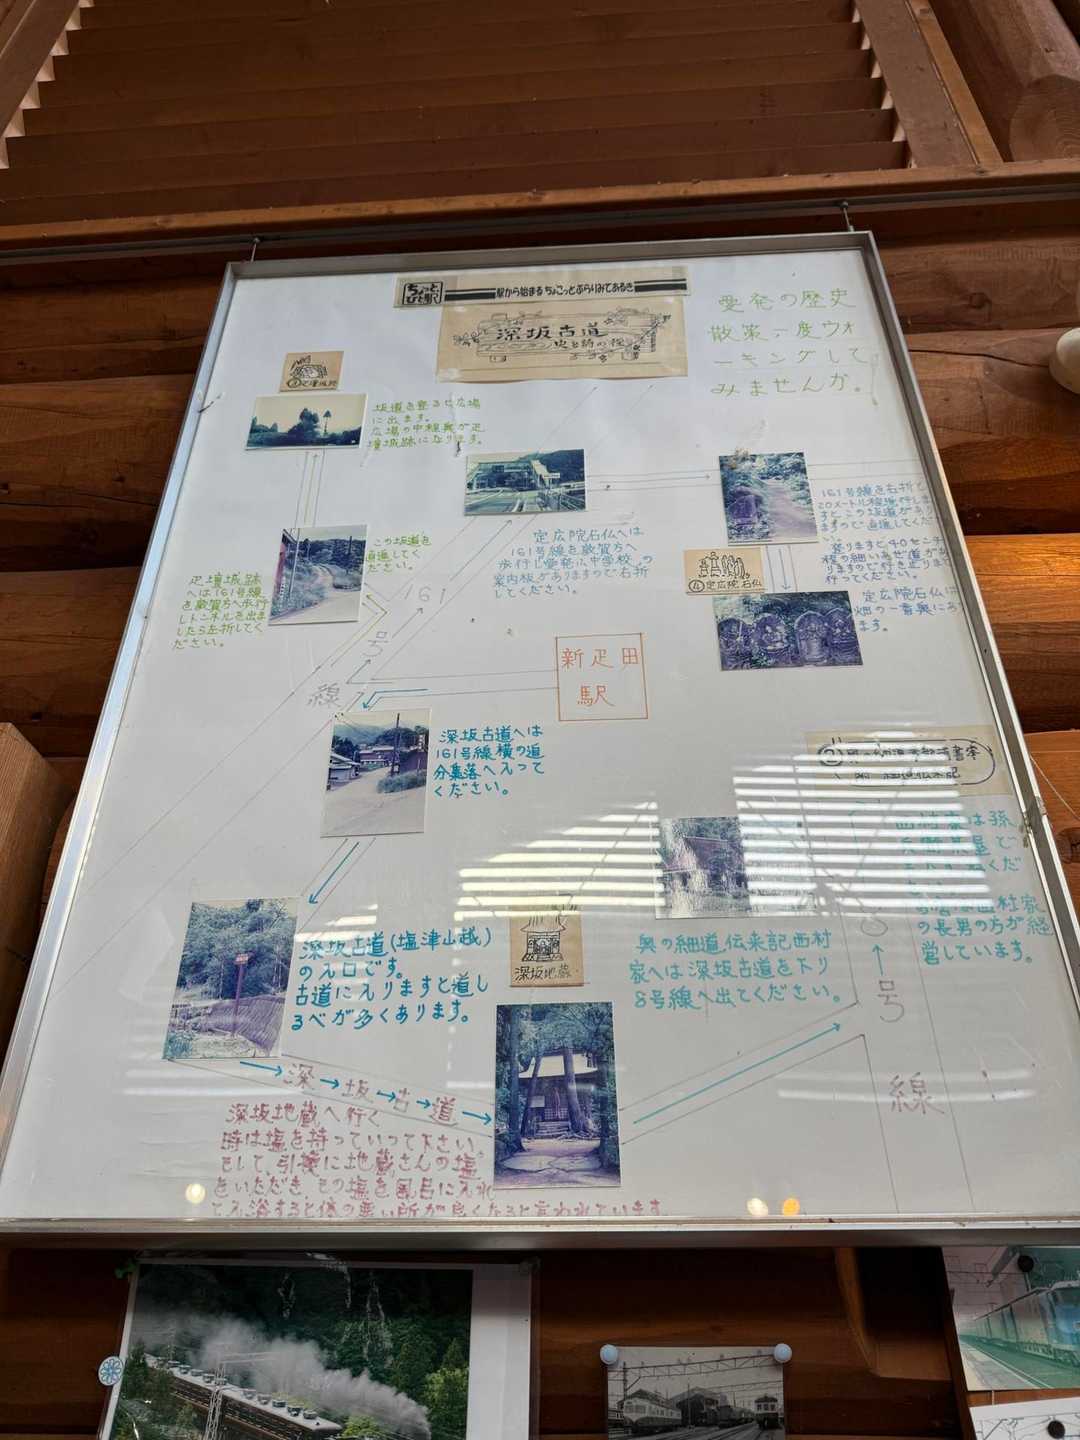 ちょっと
ひと駅
駅から始まる ちょこっとぶらりみてあるき
深坂古道
史と緑の桜
愛発の歴史
散策一度ウォ
ーキングして
みませんか。
坂道を登ると広場
に出ます。
広場の中程奥が疋
壇城跡になります。
この坂道を
直進してく
ださい。
疋壇城跡
へは161号線
を敦賀方へ歩行
しトンネルを出ま
したら左折してく
ださい。
定広院石仏へは
161号線を敦賀方へ
歩行し愛発小中学校の
案内板がありますので右折
してください。
161号線を右折して
20メートル程歩行しま
すとこの坂道があり
ますので直進してくだ
④定広院石仏
登りますと40センチ
程の細いあぜ道があ
りますので行き止りまで
行ってください。
定広院石仏は
畑の一番奥にあり
ます。
161
号
線
新疋田
駅
深坂古道へは
161号線横の道
分集落へ入って
ください。
深坂古道(塩津山越)
の入口です。
古道に入りますと道し
るべが多くあります。
深坂地蔵
西村家は孫
の長男の方が経
営しています。
奥の細道伝来記西村
家へは深坂古道を下り
8号線へ出てください。
8
号
線
深→坂→古→道
深坂地蔵へ行く
時は塩を持っていって下さい。
そして、引換に地蔵さんの塩
をいただき、その塩を風呂に入れ
て入浴すると体の悪い所が良くなると言われています。